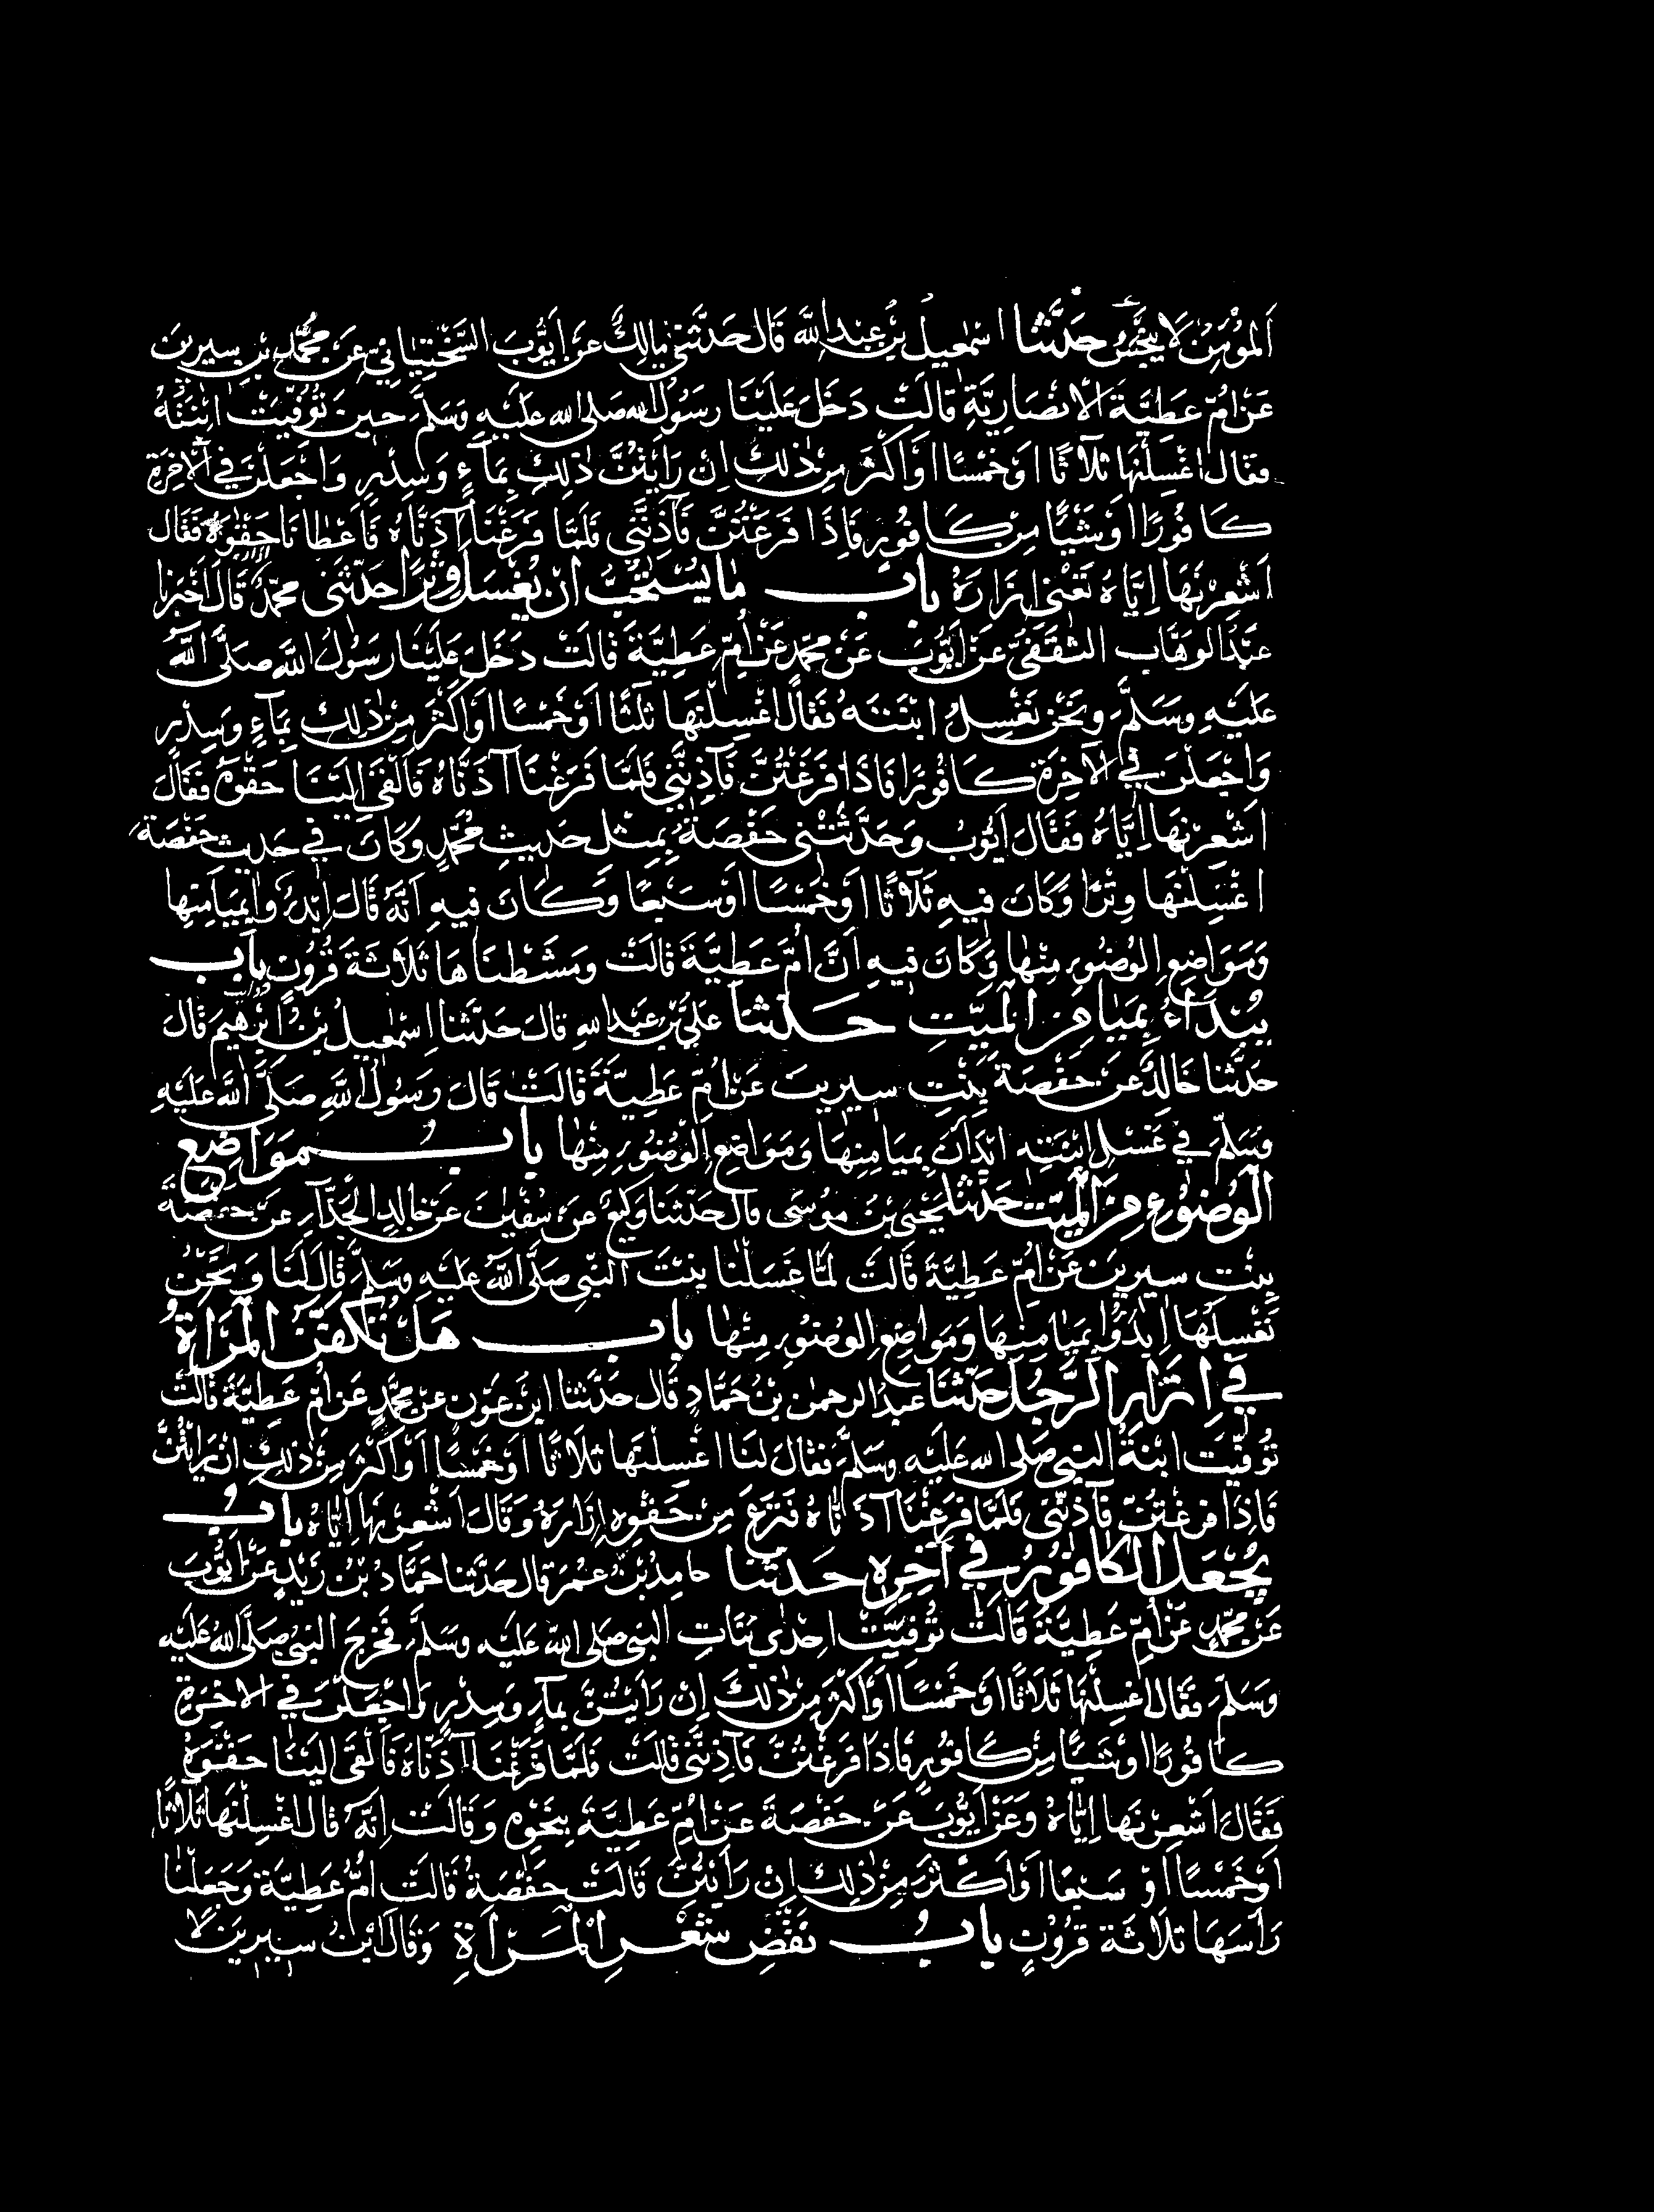 اَلمُؤْمِنُ لَا يَنْجُسُ حَدَّثَنَا اسْمٰعِيلُ بْنُ عَبْدِ اللَّهِ قَالَ حَدَّثَنِي مَالِكٌ عَنْ اَيُّوبَ السَّخْتِيَانِيِّ عَنْ مُحَمَّدِ بْنِ سِيرِينَ
عَنْ اُمِّ عَطِيَّةَ الْاَنْصَارِيَّةِ قَالَتْ دَخَلَ عَلَيْنَا رَسُولُ الله صلى الله عَلَيْهِ وَسَلَّمَ حِينَ تُوُفِّيَتْ ابْنَتُهُ
فقَالَ اغْسِلْنَهَا ثَلَاثًا اَوْ خَمْسًا اَوْ اَكْثَرَ مِنْ ذٰلِكَ اِنْ رَاَيْتُنَّ ذٰلِكِ بِمَاءٍ وَسِدْرٍ وَاجْعَلْنَ فِي الْاٰخِرَةِ
كَافُورًا اَوْ شَيْئًا مِنْ كَافُورٍ فَاِذَا فَرَغْتُنَّ فَآذِنَّنِي فَلَمَّا فَرَغْنَا آذَنَّاهُ فَاَعْطَانَا حَِقْوَهُ فَقَالَ
اَشْعِرْنَهَا اِيَّاهُ تَعْنِي اِزَارَهُ بَاب مَا يُسْتَحَبُّ اَنْ يُغْسَلَ وِتْرًا حَدَّثَنِي مُحَمَّدٌ قَالَ اَخْبَرَنَا
عَبْدُ الْوَهَّابِ الثَّقَفِيُّ عَنْ اَيُّوبَ عَنْ مُحَمَّدٍ عَنْ اُمِّ عَطِيَّةَ قَالَتْ دَخَلَ عَلَيْنَا رَسُولُ اللَّهِ صَلَّى اللَّهُ
عَلَيْهِ وَسَلَّمَ وَنَحْنُ نَغْسِلُ ابْنَتَهُ فَقَالَ اغْسِلْنَهَا ثَلٰثًا اَوْ خَمْسًا اَوْ اَكْثَرَ مِنْ ذٰلِكِ بِمَاءٍ وَسِدْرٍ
وَاجْعَلْنَ فِي الْآخِرَةِ كَافُورًا فَاِذَا فَرَغْتُنَّ فَآذِنَّنِي فَلَمَّا فَرَغْنَا آذَنَّاهُ فَاَلْقَى اِلَيْنَا حَقْوَهُ فَقَالَ
اَشْعِرْنَهَا اِيَّاهُ فَقَالَ اَيُّوبُ وَحَدَّثَتْنِي حَفْصَةُ بِمِثْلِ حَدِيثِ مُحَمَّدٍ وَكَانَ فِي حَدِيثِ حَفْصَةَ
اغْسِلْنَهَا وِتْرًا وَكَانَ فِيهِ ثَلَاثًا اَوْ خَمْسًا اَوْ سَبْعًا وَكَانَ فِيهِ اَنَّهُ قَالَ ابْدَؤُا بِمَيَامِنِهَا
وَمَوَاضِعِ الْوُضُوءِ مِنْهَا وَكَانَ فِيهِ اَنَّ اُمَّ عَطِيَّةَ قَالَتْ وَمَشَطْنَاهَا ثَلَاثَةَ قُرُونٍ بَاب
يُبْدَاُ بِمَيَامِنِ الْمَيِّتِ حَدَّثَنَا عَلِيُّ بْنُ عَبْدِ اللهِ قَالَ حَدَّثَنَا اِسْمٰعِيلُ بْنُ اِبْرٰهِيمَ قَالَ
حَدَّثَنَا خَالِدٌ عَنْ حَفْصَةَ بِنْتِ سِيرِينَ عَنْ اُمِّ عَطِيَّةَ قَالَتْ قَالَ رَسُولُ اللَّهِ صَلَّى اللَّهُ عَلَيْهِ
وَسَلَّمَ فِي غَسْلِ ابْنَتِهِ ابْدَاْنَ بِمَيَامِنِهَا وَمَوَاضِعِ الْوُضُوءِ مِنْهَا بَابُ مَوَاضِعِ
الْوُضُوءِ مِنَ الْمَيِّتِ حَدَّثَنَا يَحْيَى بْنُ مُوسَى قَالَ حَدَّثَنَا وَكِيعٌ عَنْ سُفْيٰنَ عَنْ خَالِدٍ الْحَذَّاءِ عَنْ حَفْصَةَ
بِنْتِ سِيرِينَ عَنْ اُمِّ عَطِيَّةَ قَالَتْ لَمَّا غَسَلْنَا بِنْتَ النَّبِيِّ صَلَّى اللَّهُ عَلَيْهِ وَسَلَّمَ قَالَ لَنَا وَنَحْنُ
نَغْسِلُهَا اِبْدَؤُا بِمَيَامِنِهَا وَمَوَاضِعِ الْوُضُوءِ مِنْهَا بَاب هَلْ تُكَفَّنُ الْمَرْاَةُ
فِي اِزَارِ الرَّجُلِ حَدَّثَنَا عَبْدُ الرحمٰنِ بْنُ حَمَّادٍ قَالَ حَدَّثَنَا ابْنُ عَوْنٍ عَنْ مُحَمَّدٍ عَنْ اُمِّ عَطِيَّةَ قَالَتْ
تُوُفِّيَتِ ابْنَةُ النَّبِيِّ صَلى الله عَلَيْهِ وَسَلَّمَ فَقَالَ لَنَا اغْسِلْنَهَا ثَلَاثًا اَوْ خَمْسًا اَوْ اَكْثَرَ مِنْ ذٰلِكِ اِنْ رَاَيْتُنَّ
فَاِذَا فَرَغْتُنَّ فَآذِنَّنِي فَلَمَّا فَرَغْنَا آذَنَّاهُ فَنَزَعَ مِنْ حَقْوِهِ اِزَارَهُ وَقَالَ اَشْعِرْنَهَا اِيَّاهُ بَابُ
يُجْعَلُ الْكَافُورُ فِي آخِرِهِ حَدَّثَنَا حَامِدُ بْنُ عُمَرَ قَالَ حَدَّثَنَا حَمَّادُ بْنُ زَيْدٍ عَنْ اَيُّوبَ
عَنْ مُحَمَّدٍ عَنْ اُمِّ عَطِيَّةَ قَالَتْ تُوُفِّيَتْ اِحْدَى بَنَاتِ النَّبِيِّ صَلى اللَّهُ عَلَيْهِ وَسَلَّمَ فَخَرَجَ النَّبِيُّ صَلَّى اللَّهُ عَلَيْهِ
وَسَلَّمَ فَقَالَ اغْسِلْنَهَا ثَلَاثًا اَوْ خَمْسًا اَوْ اَكْثَرَ مِنْ ذٰلِكَ اِنْ رَاَيْتُنَّ بِمَاءٍ وَسِدْرٍ وَاجْعَلْنَ فِي الْاٰخِرَةِ
كَافُورًا اَوْ شَيْئًا مِنْ كَافُورٍ فَاِذَا فَرَغْتُنَّ فَآذِنَّنِي قَالَتْ فَلَمَّا فَرَغْنَا آذَنَّاهُ فَاَلْقَى اِلَيْنَا حَقْوَهُ
فَقَالَ اَشْعِرْنَهَا اِيَّاهُ وَعَنْ اَيُّوبَ عَنْ حَفْصَةَ عَنْ اُمِّ عَطِيَّةَ بِنَحْوِهِ وَقَالَتْ اِنَّهُ قَالَ اغْسِلْنَهَا ثَلَاثًا
اَوْ خَمْسًا اَوْ سَبْعًا اَوْ اَكْثَرَ مِنْ ذٰلِكِ اِنْ رَاَيْتُنَّ قَالَتْ حَفْصَةُ قَالَتْ اُمُّ عَطِيَّةَ وَجَعَلْنَا
رَاْسَهَا ثَلَاثَةَ قُرُونٍ بَابُ نَقْضِ شَعْرِ الْمَرْاَةِ وَقَالَ ابْنُ سِيرِينَ لَا